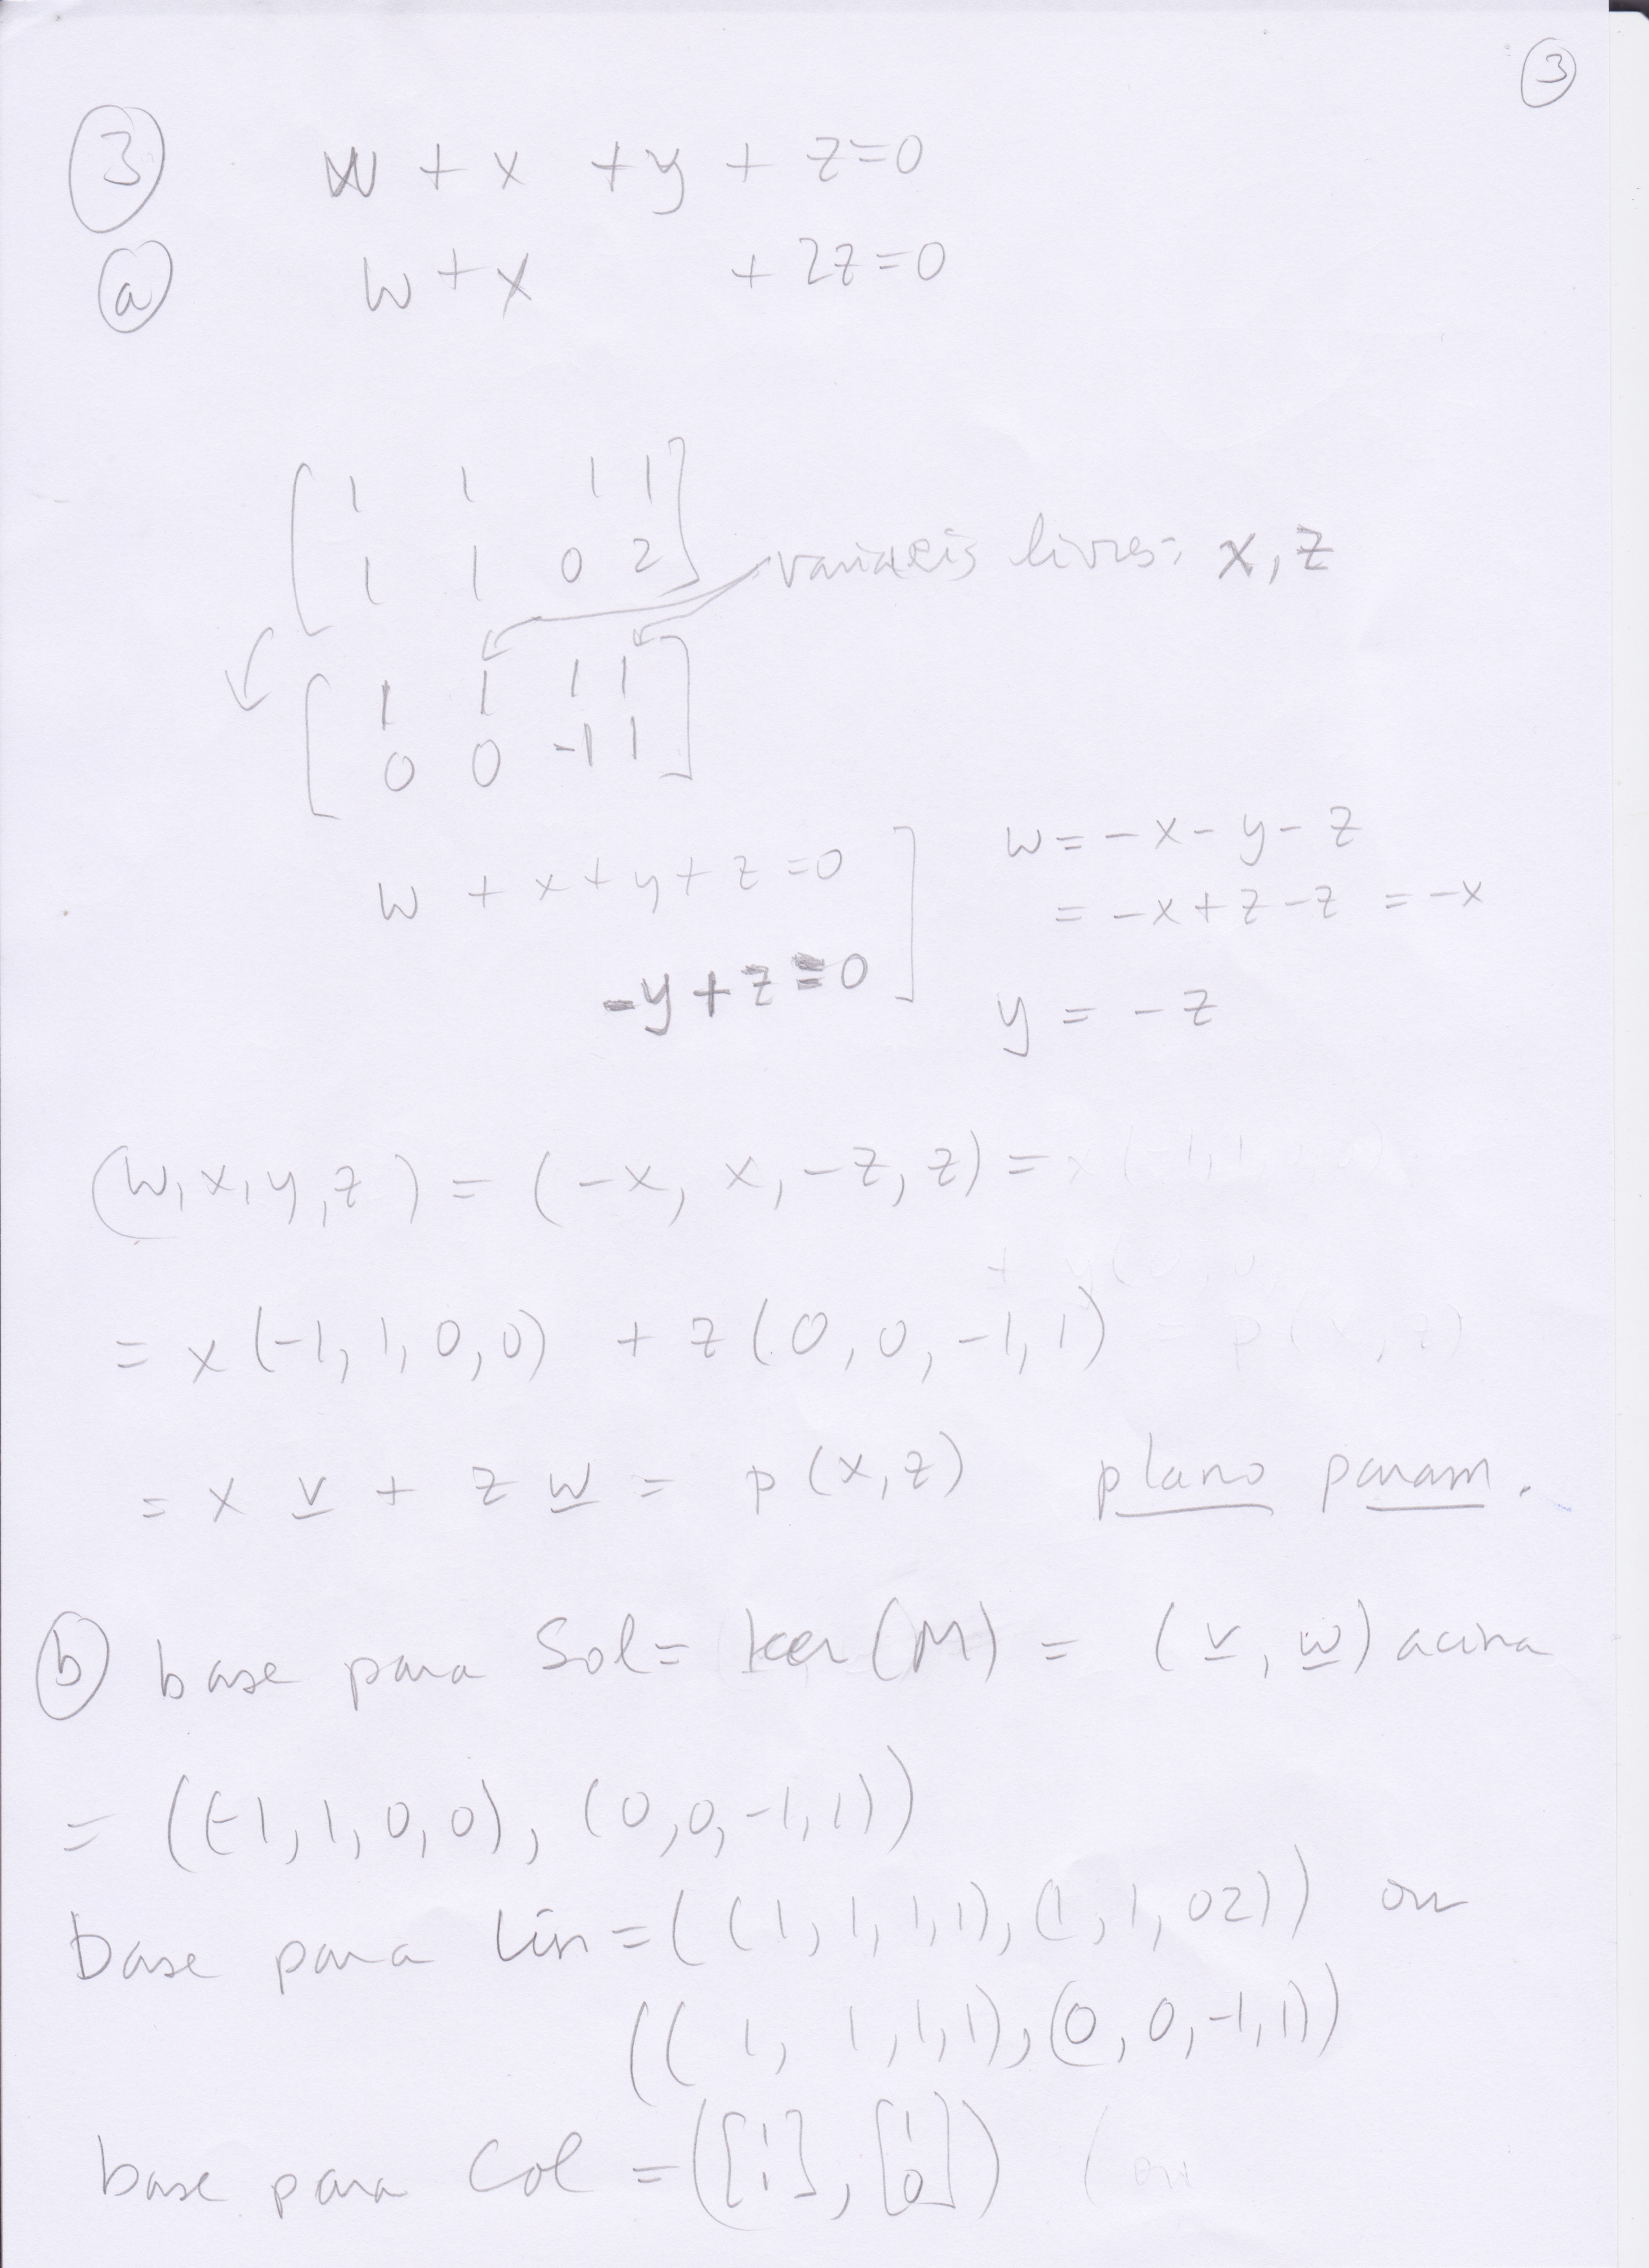 ③
③ w + x + y + z = 0
ⓐ w + x + 2z = 0
[ 1 1 1 1 ]
[ 1 1 0 2 ] variaveis livres: x, z
[ 1 1 1 1 ]
[ 0 0 -1 1 ]
w + x + y + z = 0 ] w = -x - y - z
= -x + z - z = -x
-y + z = 0 ] y = -z
(w, x, y, z) = (-x, x, -z, z) =
= x(-1, 1, 0, 0) + z(0, 0, -1, 1)
= x v + z w = p(x, z) plano param.
ⓑ base para Sol = ker(M) = (v, w) acima
= ((-1, 1, 0, 0), (0, 0, -1, 1))
base para Lin = ((1, 1, 1, 1), (1, 1, 0 2)) ou
((1, 1, 1, 1), (0, 0, -1, 1))
base para Col = ([1 1], [1 0]) (ou